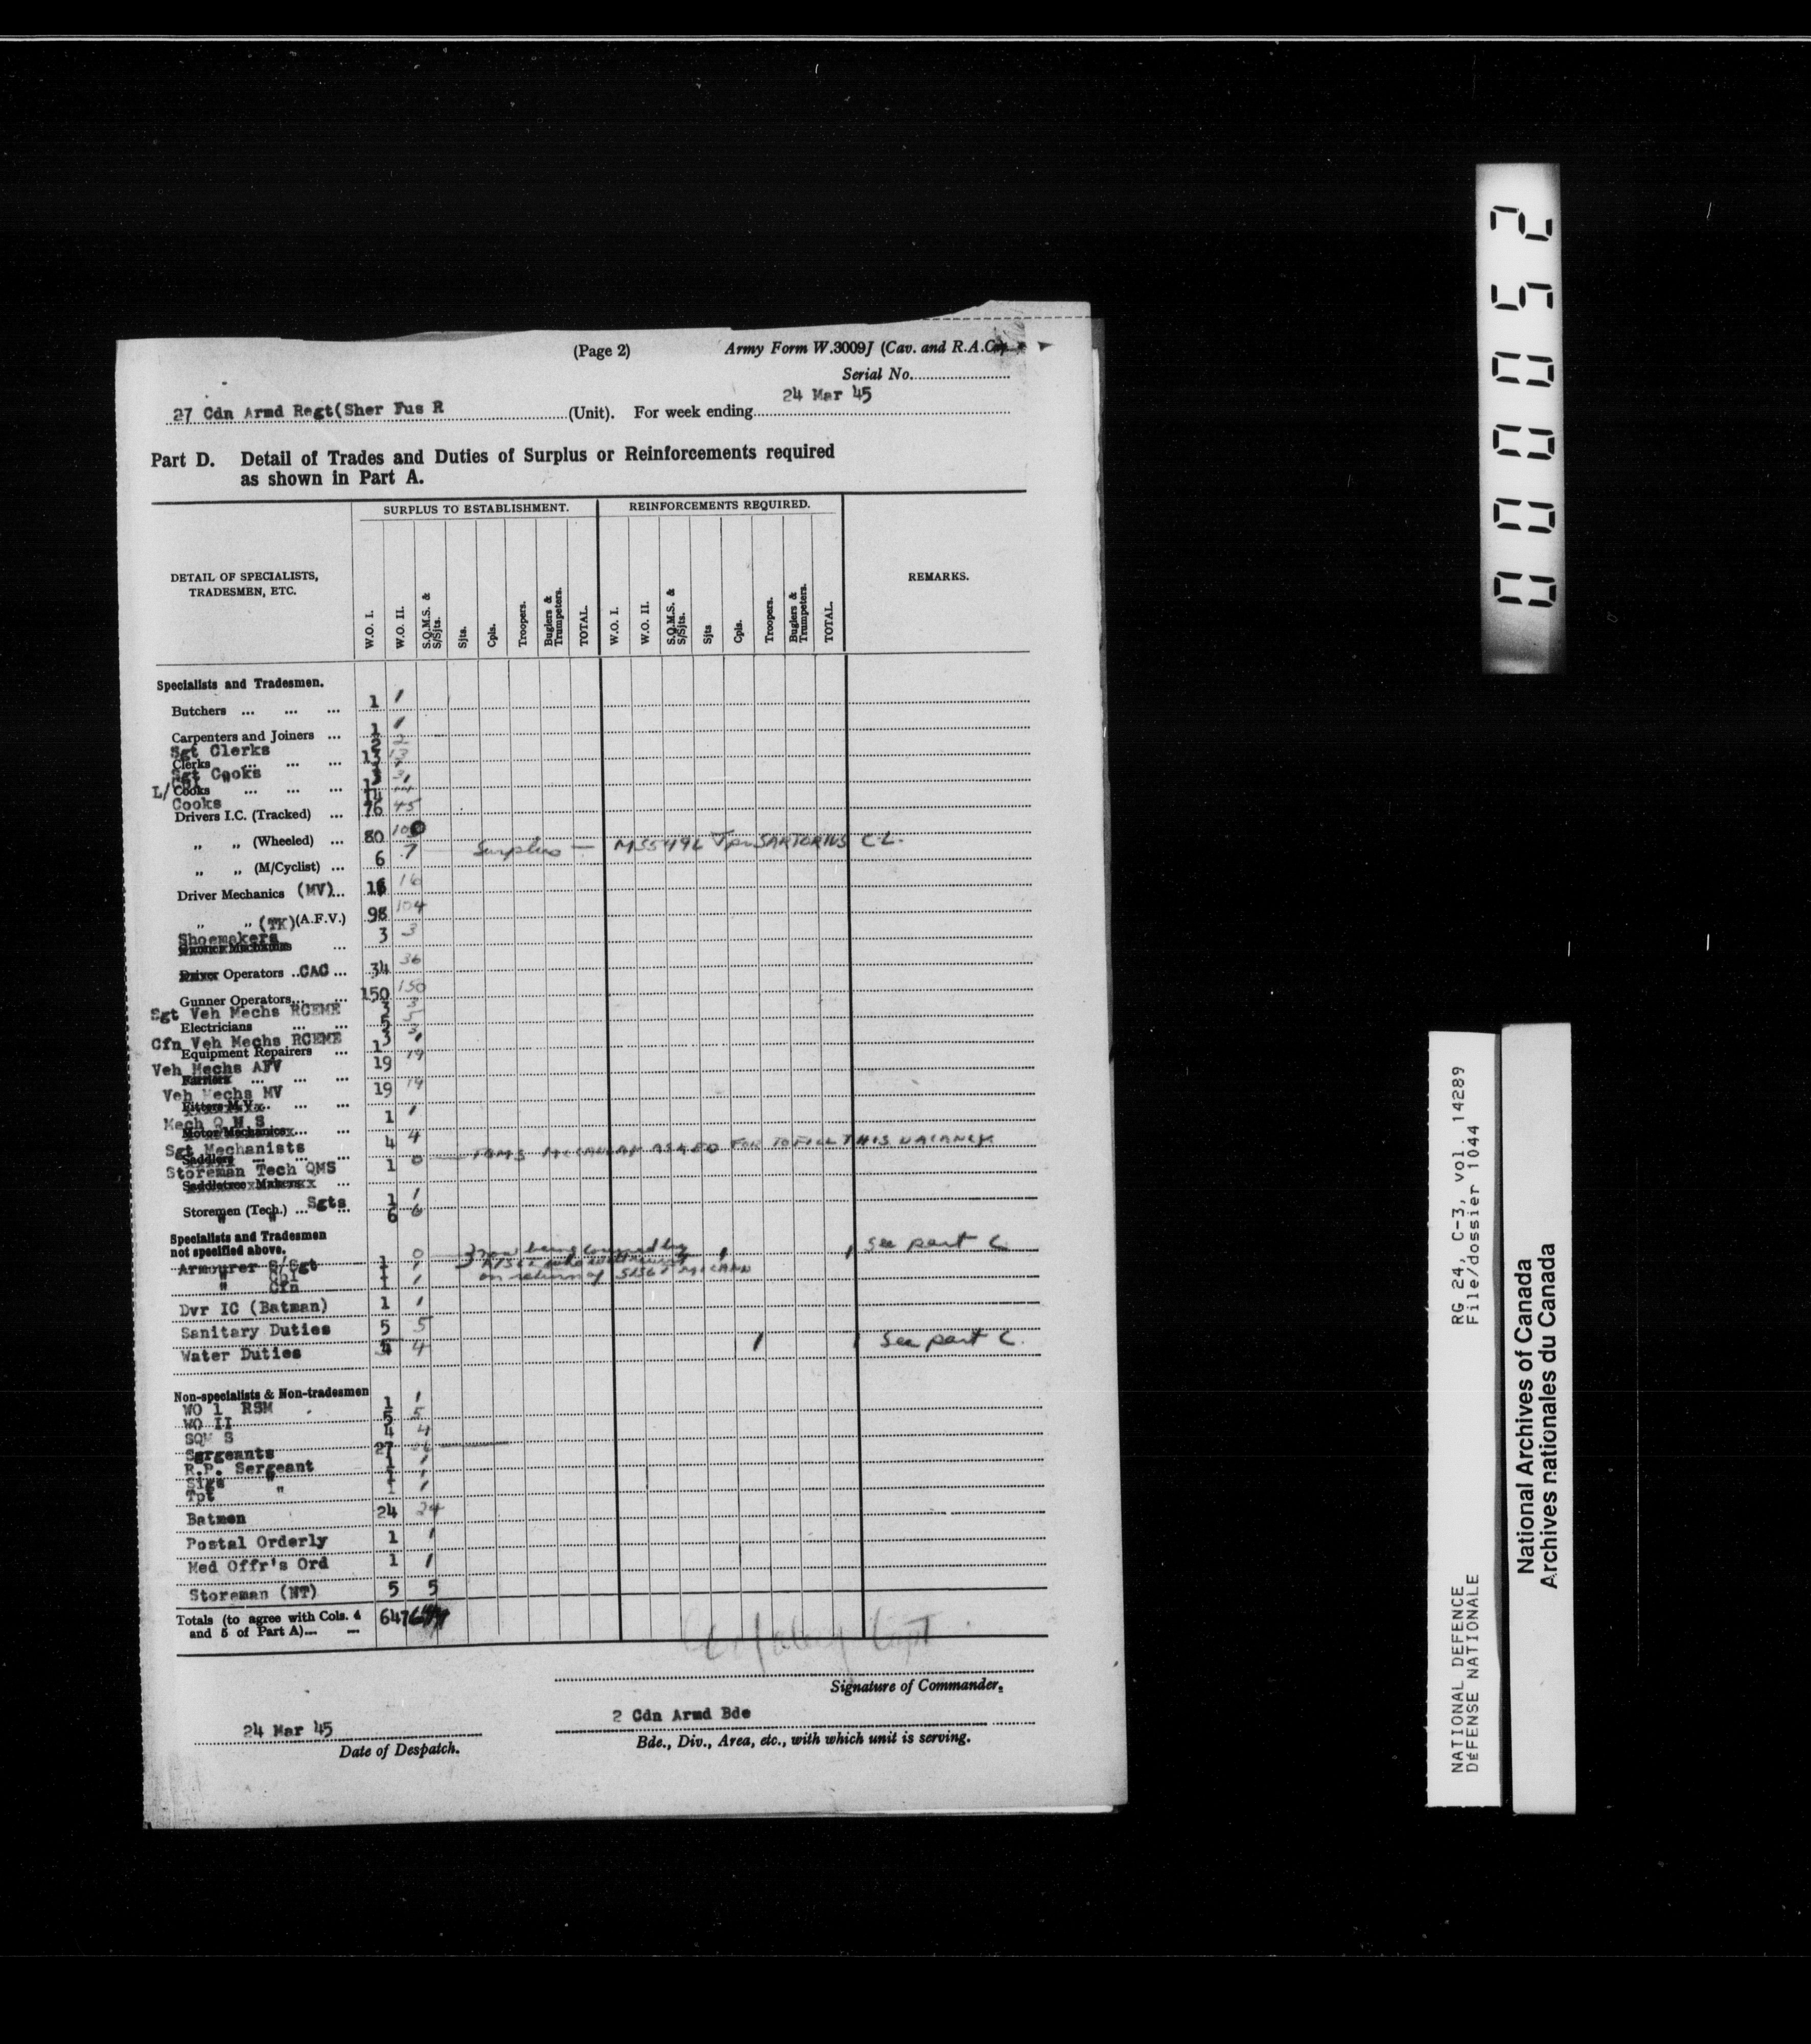 (Page 2) Army Form W.3009J (Cav. and R.A.C.)
Serial No.
27 Cdn Armd Regt(Sher Fus R (Unit). For week ending 24 Mar 45
Part D. Detail of Trades and Duties of Surplus or Reinforcements required
as shown in Part A.
SURPLUS TO ESTABLISHMENT. REINFORCEMENTS REQUIRED.
DETAIL OF SPECIALISTS, TRADESMEN, ETC. REMARKS.
W.O. I. W.O. II. S.Q.M.S. & S/Sjts. Sjts. Cpls. Troopers. Buglers & Trumpeters. TOTAL. W.O. I. W.O. II. S.Q.M.S. & S/Sjts. Sjts Cpls. Troopers. Buglers & Trumpeters. TOTAL.
Specialists and Tradesmen.
Butchers ... ... ... 1 1
Carpenters and Joiners ... 1 1
Sgt Clerks 2 2
Clerks ... ... 13 13
Sgt Cooks
L/ Cooks ... ... ...
Cooks 14 14
Drivers I.C. (Tracked) ... 76 45
„ „ (Wheeled) ... 80 100
„ „ (M/Cyclist) ... 6 7 Surplus — Tpr SARTORIUS C.L.
Driver Mechanics (MV)... 16 16
„ „ (TK) (A.F.V.) 98 104
Shoemakers ... 3 3
Operators ..CAC ... 34 36
Gunner Operators... ... 150 150
Sgt Veh Mechs RCEME 3 3
Electricians ... ... 5 5
Cfn Veh Mechs RCEME 3 3
Equipment Repairers ... 1 1
Veh Mechs AFV 19 19
Farriers ... ... ...
Veh Mechs MV 19 19
Fitters M.V. ... ...
Mech Q M S 1 1
Motor Mechanics ... ...
Sgt Mechanists 4 4
Saddlers ... ... ...
Storeman Tech QMS 1 0 — ASKED FOR TO FILL THIS VACANCY
Saddletree Makers ...
Storemen (Tech.) ... Sgts ... 1 1
" " 6 6
Specialists and Tradesmen
not specified above.
Armourer S/Sgt 1 0 now being covered by 1 1 see part C
" Cpl 1 1 who will
" Cfn 1 1 on return of
Dvr IC (Batman) 1 1
Sanitary Duties 5 5
Water Duties 4 4 1 1 see part C.
Non-specialists & Non-tradesmen
WO 1 RSM 1 1
WO II 5 5
SQM S 4 4
Sergeants 27 26
R.P. Sergeant 1 1
Sigs " 1 1
Tpt " 1 1
Batmen 24 24
Postal Orderly 1 1
Med Offr's Ord 1 1
Storeman (NT) 5 5
Totals (to agree with Cols. 4 and 5 of Part A)... ... 647
Capt
Signature of Commander.
24 Mar 45 2 Cdn Armd Bde
Date of Despatch. Bde., Div., Area, etc., with which unit is serving.
000052
RG 24, C-3, vol. 14289
File/dossier 1044
NATIONAL DEFENCE
DÉFENSE NATIONALE
National Archives of Canada
Archives nationales du Canada